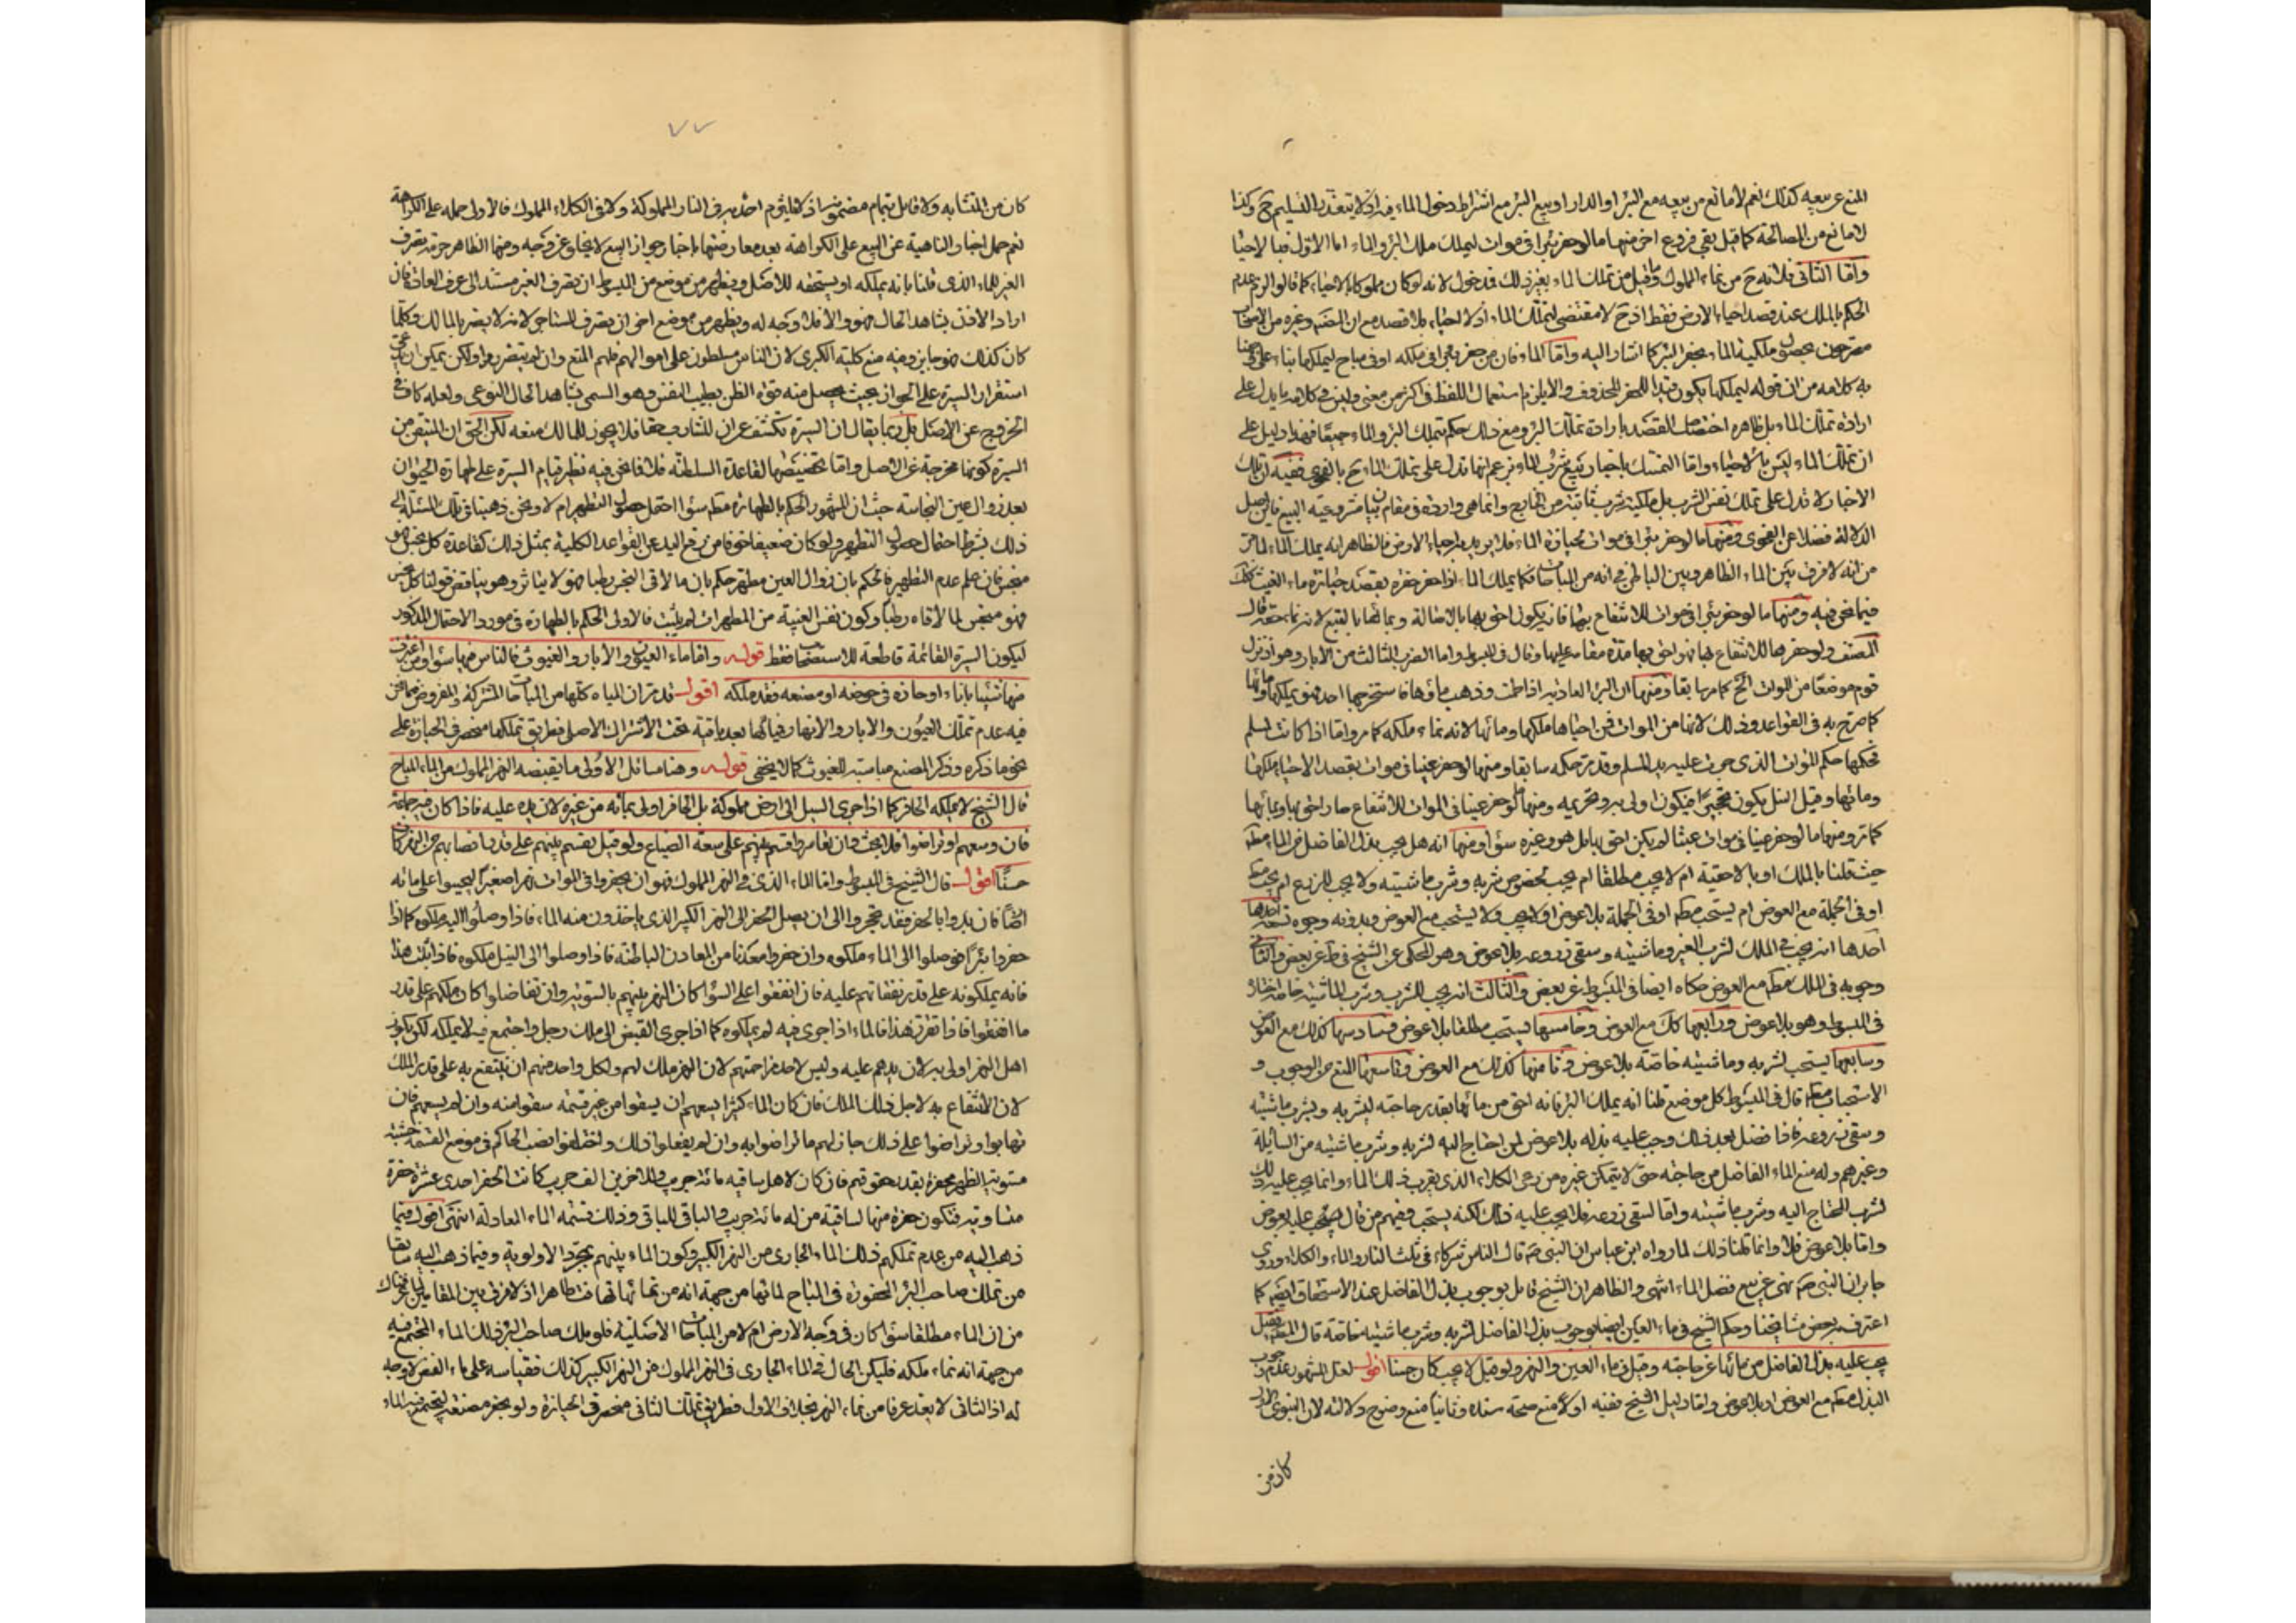 المنع عن بيعه كذلك نعم لا مانع من بيعه مع البئر او الدار او بيع البئر مع اشتراط دخول الماء فيه اذ لا يتعذر التسليم ح وكذا
لا مانع من المصالحة كما قيل بقي فروع اخر منها ما لو حفر بئرا في موات ليملك ملك البئر والماء اما الاول فبالاحيا
واما الثاني فلانه ح من نماء المملوك وما قيل من تملك الماء بغير ذلك فدخول لانه لو كان مملوكا بالاحياء كما قالوا لزم عدم
الحكم بالملك عند قصد احياء الارض فقط اذ ح لا مقتضى لتملك الماء اذ لا احياء بلا قصد مع ان المصنف وغيره من الاصحاب
مصرحون بحصول ملكية الماء بحفر البئر كما اشار اليه واما الماء فان من حفر بئرا في ملكه او في مباح ليملكها بناء على
به كلامه من ان قوله ليملكها يكون قيدا للحفر المحذوف والا يلزم استعمال اللفظ في اكثر من معنى وليس في كلامه ما يدل على
ارادة تملك الماء بل ظاهره اختصاص القصد بارادة تملك البئر ومع ذلك حكم بتملك البئر والماء جميعا فهذا دليل على
ان تملك الماء ليس بالاحياء واما التمسك باخبار بيع شرب الماء بزعم انها تدل على تملك الماء ح بالفحوى ففيه ان تلك
الاخبار لا تدل على تملك نفس الشرب بل ملكية شرب ثابتة من الخارج وانما هي واردة في مقام بيان مشروعية البيع فاين اصل
الدلالة فضلا عن الفحوى ومنها ما لو حفر بئرا في موات لحيازة الماء فلا يريد احياء الارض فالظاهر انه يملك الماء لما مر
من انه لا فرق بين الماء الظاهر وبين الباطن في انه من المباحات فكما يملك الماء اذا حفر حفرة بقصد حيازة ماء الغيث كذلك
فيما نحن فيه ومنها ما لو حفر بئرا في موات للانتفاع بها فانه يكون احق بها بالاصالة وبمائها بالتبع لانه نماء حقه قال
المصنف ولو حفرها للانتفاع بها فهو احق بها مدة مقامه عليها وقال في المبسوط واما الضرب الثالث من الآبار وهو اذ نزل
قوم موضعا من الموات الخ كما مر سابقا ومنها ان البئر العادية اذا طمت وذهب ماؤها فاستخرجها احد فهو يملكها وماءها
كما صرح به في القواعد وذلك لانها من الموات فمن احياها ملكها وماءها لانه نماء ملكه كما مر واما اذا كانت لمسلم
فحكمها حكم الموات الذي جرت عليه يد المسلم وقد مر حكمه سابقا ومنها لو حفر عينا في موات بقصد الاحياء ملكها
وماءها وقبل النيل يكون تحجيرا فيكون اولى به وتحريمه ومنها لو حفر عينا في الموات للانتفاع صار احق بها وبمائها
كما مر ومنها ما لو حفر عينا في موات عبثا لم يكن احق بها بل هو وغيره سواء ومنها انه هل يجب بذل الفاضل من الماء مطلقا
حيث قلنا بالملك او بالاحقية ام لا يجب مطلقا ام يجب لخصوص شربه وشرب ماشيته ولا يجب للزرع ام يجب
او في الجملة مع العوض ام يستحب مطلقا او في الجملة بلا عوض او لا يجب ولا يستحب مع العوض وبدونه وجوه تسعة
احدها انه يجب في الملك لشرب الغير وماشيته وسقي زروعه بلا عوض وهو المحكي عن الشيخ في ف عن بعض والثاني
وجوبه في الملك مطلقا مع العوض حكاه ايضا في المبسوط عن بعض والثالث انه يجب للشرب وشرب الماشية خاصة اختاره
في المبسوط وهو بلا عوض ورابعها كك مع العوض وخامسها يستحب مطلقا بلا عوض وسادسها كذلك مع العوض
وسابعها يستحب لشربه وماشيته خاصة بلا عوض وثامنها كذلك مع العوض وتاسعها المنع من الوجوب و
الاستحباب مطلقا قال في المبسوط كل موضع قلنا انه يملك البئر فانه احق من مائها بقدر حاجته لشربه وشرب ماشيته
وسقي زروعه فاذا فضل بعد ذلك وجب عليه بذله بلا عوض لمن احتاج اليه لشربه وشرب ماشيته من السائلة
وغيرهم وله منع الماء الفاضل من حاجته حتى لا يتمكن غيره من رعي الكلاء الذي يقرب ذلك الماء وانما يجب عليه ذلك
لشرب المحتاج اليه وشرب ماشيته واما لسقي زروعه فلا يجب عليه ذلك لكنه يستحب وفيهم من قال يستحب عليه بعوض
واما بلا عوض فلا وانما قلنا ذلك لما رواه ابن عباس ان النبي ص قال الناس شركاء في ثلث النار والماء والكلاء وروى
جابر ان النبي ص نهى عن بيع فضل الماء انتهى والظاهر ان الشيخ قايل بوجوب بذل الفاضل عند الاستحقاق ايضا كما
اعترف به بعض مشايخنا وحكم الشيخ في ماء العين ايضا بوجوب بذل الفاضل لشربه وشرب ماشيته خاصة قال المصنف وقيل
يجب عليه بذل الفاضل من مائها عن حاجته وقيل في ماء العين والنهر ولو قيل لا يجب كان حسنا اقول لعل المشهور عدم وجوب
البذل مطلقا مع العوض او بلا عوض واما دليل الشيخ ففيه اولا منع صحة سنده وثانيا منع وضوح دلالته لان النبوي الاول
كان من
٧٧
كان من المتشابه ولا قايل بتمام مضمونه اذ لا يلتزم احد به في النار المملوكة ولا في الكلاء المملوك فالاولى حمله على الكراهة
نعم حمل اخبار الناهية عن البيع على الكراهة بعد معارضتها باخبار جواز البيع لا يخلو عن وجه ومنها الظاهر حرمة تصرف
الغير للماء الذي قلنا بانه يملكه او يستحقه للاصل ويظهر من موضع من المبسوط ان تصرف الغير مستند الى عرف العادة فان
اراد الاذن بشاهد الحال فهو والا فلا وجه له ويظهر من موضع اخر ان تصرف السناجي لانه لا يضر بالمالك وكلما
كان كذلك فهو جايز وفيه منع كلية الكبرى لان الناس مسلطون على اموالهم فلهم المنع وان لم يتضرروا ولكن يمكن ان يدعى
استقرار السيرة على الجواز بحيث يحصل منه قوة الظن بطيب النفس وهو المسمى بشاهد الحال النوعي ولعله كاف في
الخروج عن الاصل بل ربما يقال ان السيرة تكشف عن ان للشارب حقا فلا يجوز للمالك منعه لكن الحق ان المتيقن من
السيرة كونها مخرجة عن الاصل واما تخصيصها لقاعدة السلطنة فلا فما نحن فيه نظير قيام السيرة على طهارة الحيوان
بعد زوال عين النجاسة حيث ان المشهور الحكم بالطهارة مطلقا سواء احتمل حصول التطهير ام لا ونحن ذهبنا في تلك المسئلة الى
ذلك بشرط احتمال حصول التطهير ولو كان ضعيفا خوفا من رفع اليد عن القواعد الكلية بمثل ذلك كقاعدة كل نجس فهو
منجس فان علم عدم التطهير فالحكم بان زوال العين مطهر حكم بان ما لاقى النجس رطبا فهو لا يتاثر وهو يناقض قولنا كل نجس
فهو منجس لما لاقاه رطبا وكون نفس الغيبة من المطهرات لم يثبت فالاولى الحكم بالطهارة في مورد الاحتمال المذكور
ليكون السيرة القائمة قاطعة للاستصحاب فقط قوله واما ماء العيون والآبار والغيوث فالناس فيها سواء ومن اغترف
منها شيئا باناء او حازه في حوضه او مصنعه فقد ملكه اقول قد مر ان المياه كلها من المباحات المشتركة والمفروض فيما نحن
فيه عدم تملك العيون والآبار والانهار فمائها بعد باقية تحت الاشتراك الاصلي فطريق تملكها منحصر في الحيازة على
نحو ما ذكره وذكر المصنع مناسب للغيوث كما لا يخفى قوله وهنا مسائل الاولى ما يقبضه النهر المملوك من الماء المباح
قال الشيخ لا يملكه الحافر كما اذا جرى السيل الى ارض مملوكة بل الحافر اولى بمائه من غيره لان يده عليه فاذا كان فيه جماعة
فان وسعهم او تراضوا فلا بحث وان تعاسروا قسم بينهم على سعة الضياع ولو قيل يقسم بينهم على قدر انصبائهم من النهر كان
حسنا اقول قال الشيخ في المبسوط واما الماء الذي في النهر المملوك فهو ان يحفروا في الموات نهرا صغيرا ليحيوا على مائه
ارضا فان بدوا بالحفر فقد تحجروا الى ان يصل الحفر الى النهر الكبير الذي ياخذون منه الماء فاذا وصلوا اليه ملكوه كما اذا
حفروا بئرا فوصلوا الى الماء ملكوه وان حفروا معدنا من المعادن الباطنة فاذا وصلوا الى النيل ملكوه فاذا ثبت هذا
فانه يملكونه على قدر نفقاتهم عليه فان انفقوا على السواء كان النهر بينهم بالسوية وان تفاضلوا كان ملكهم على قدر
ما انفقوا فاذا تقرر هذا فالماء اذا جرى فيه لم يملكوه كما اذا جرى الفيض الى ملك رجل واجتمع فيه لا يملكه لكن يكون
اهل النهر اولى به لان يدهم عليه وليس لاحد مزاحمتهم لان النهر ملك لهم ولكل واحد منهم ان ينتفع به على قدر الملك
لان الانتفاع به لاجل ذلك الملك فان كان الماء كثيرا يسعهم ان يسقوا من غير قسمة سقوا منه وان لم يسعهم فان
تهايوا وتراضوا على ذلك جاز لهم ما تراضوا به وان لم يفعلوا ذلك واختلفوا نصب الحاكم في موضع القسمة خشبة
مستوية الظهر محفرة بقدر حقوقهم فان كان لاهل ساقية مائة جريب وللاخرين الف جريب كانت الحفر احدى عشرة حفرة
متساوية فتكون حفرة منها لساقية من له مائة جريب والباقي للباقي وذلك قسمة الماء العادلة انتهى اقول فيما
ذهب اليه من عدم تملكهم ذلك الماء الجاري من النهر الكبير وكون الماء بينهم بمجرد الاولوية وفيما ذهب اليه سابقا
من تملك صاحب البئر المحفورة في المباح لمائها من جهة انه من نمائها تهافت ظاهر اذ لا فرق بين المقامين
من ان الماء مطلقا سواء كان في وجه الارض ام لا من المباحات الاصلية فلو ملك صاحب البئر ذلك الماء المجتمع فيه
من جهة انه نماء ملكه فليكن الحال في الماء الجاري في النهر المملوك من النهر الكبير كذلك فقياسه على ماء الفيض لا وجه
له اذ الثاني لا يعد عرفا من نماء النهر بخلاف الاول فطريق تملك الثاني منحصر في الحيازة ولو بحفر مصنعة ليجتمع فيه الماء